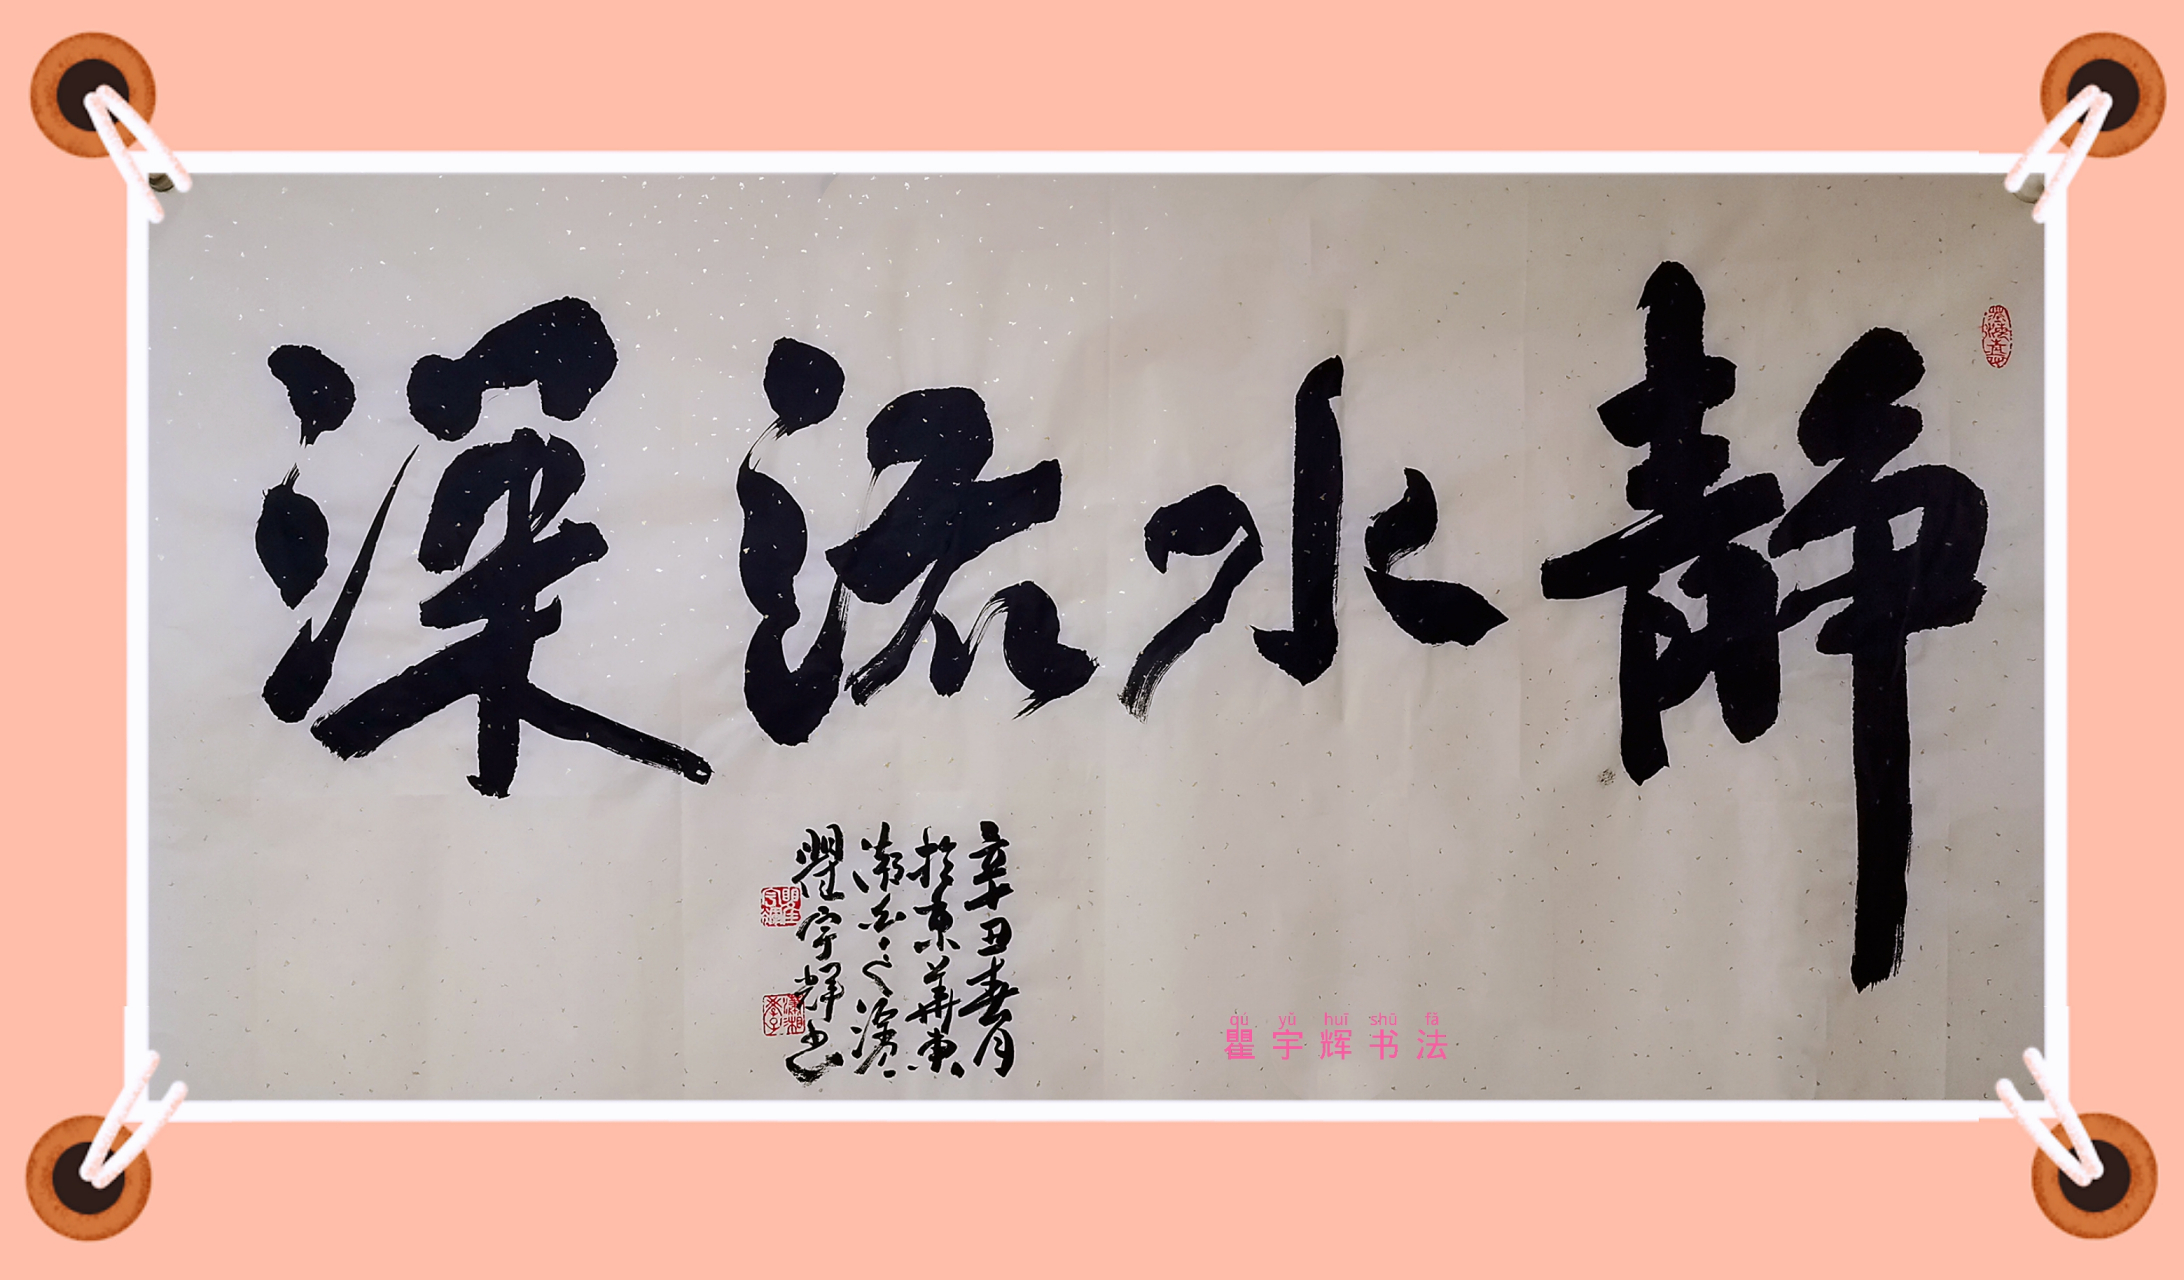 静水流深
辛丑春月
於东华东
瞿宇辉书
qú yǔ huī shū fǎ
瞿宇辉书法